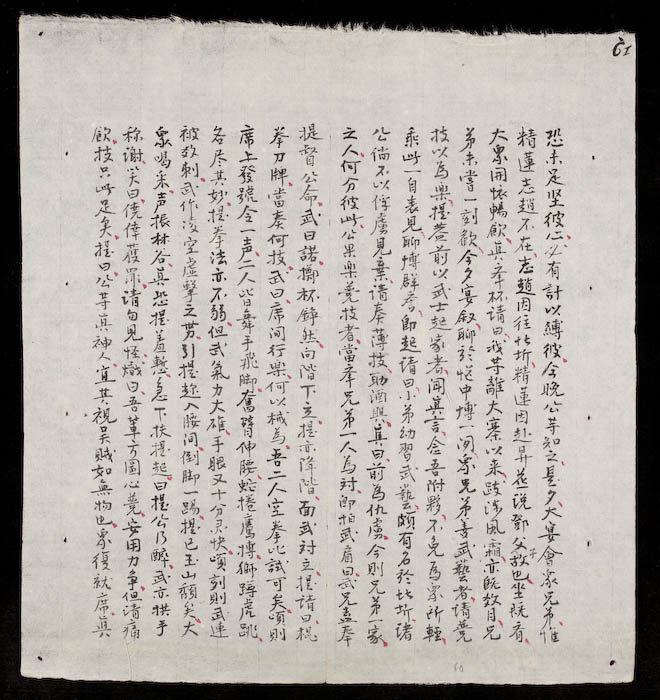 61
恐未足坚彼心必有計以縛彼今晚公等知之是夕大宴會众兄弟惟
精蓮志趙不在志趙因往北圻精蓮因赴昇花一說鄧父子故也坐既有
大众開怀暢飲真舉杯請曰我等離大寨以來跋涉風霜亦既数月兄
弟未嘗一刻歓今夕宴叙聊於忙中博一閙众兄弟喜武藝者請競
技以為樂提曾前以武士起家者聞真言念吾附夥不免為众所輕
乘此一自表見聊博群看即起請曰小弟幼習武藝頗有名於北圻諸
公倘不以俘虜見棄請奏薄技助酒興真曰前為仇虜今則兄弟一家
之人何分彼此公果樂競技者當舉兄弟一人為对即怕武肩曰武兄盍奉
提督公命武曰諾擲杯錚然向階下立提亦降階面武对立提請曰槍
拳刀牌當奏何技武曰席間行樂何以械為吾二人空拳比試可矣頃則
席上發號令一声二人皆舞手飛脚奮臂伸腰蛇捲鷹搏獅蹲虎跳
各尽其妙提拳法亦不弱但武氣力大碓手眼又十分灵快頃刻則武連
被敌刺武作淩空虛擊之势引提趂入腰间倒脚一踢提已玉山頹矣大
众喝采声振林谷真恐提羞慙急下扶提起曰提公乃醉武亦拱手
称謝笑曰僥倖獲罪請勿見怪熾曰吾輩方圖心競安用力争但請痛
飲技只此足矣提曰公等真神人宜其視吴賊如無物也众復就席真
60